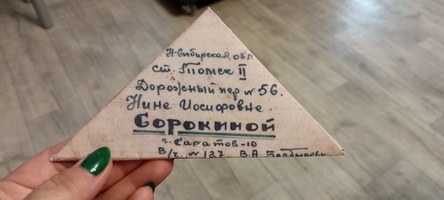 Н-сибирская обл
ст. Томск II
Дорожный пер № 56.
Нине Иосифовне
Сорокиной
г. Саратов-10
В/ч. № 127 В.А.